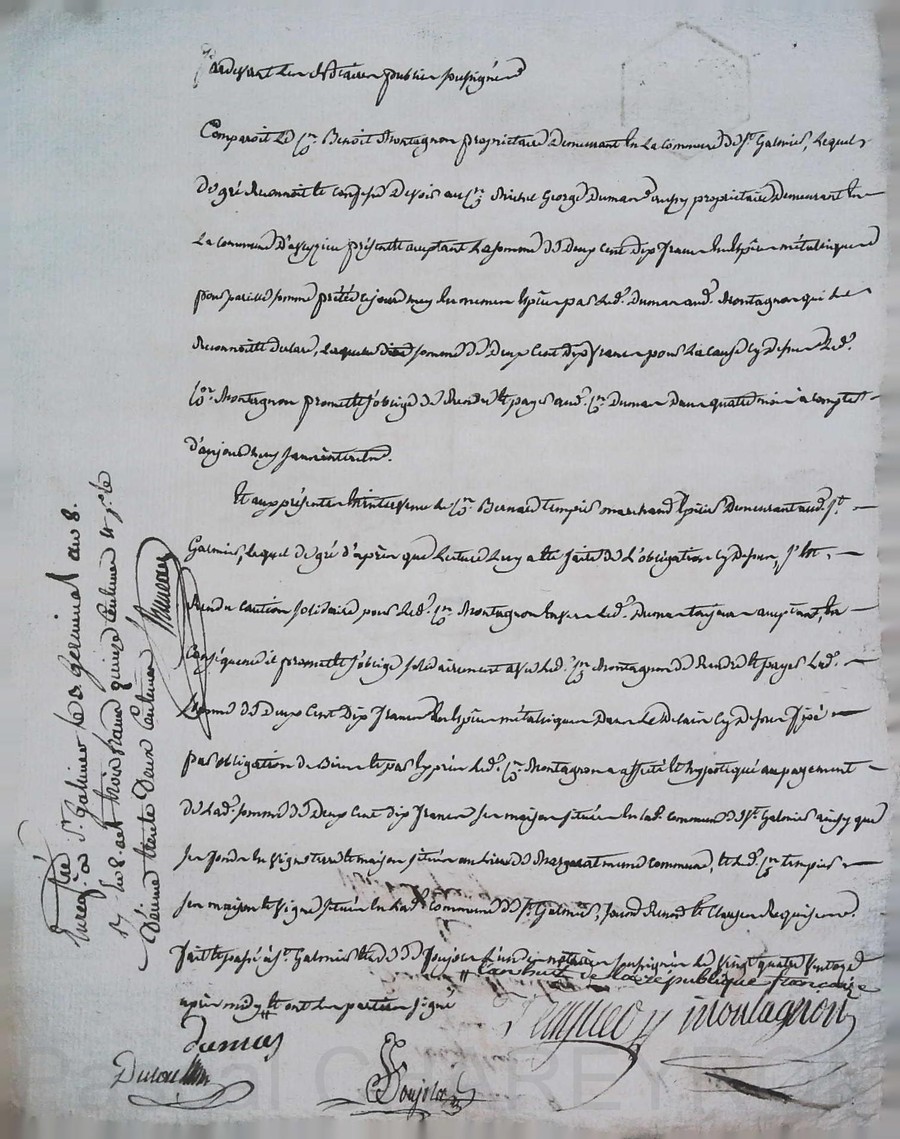 Pardevant les Notaires publics soussignés
Comparoit le Cen. Benoit Montagnon propriétaire demeurant en la Commune de St. Galmier, lequel
de gré reconnoit et confesse devoir au Cen. Michel George Dumas aussy propriétaire demeurant en
la commune d'aveyzieu présent et acceptant la somme de Deux Cent Dix francs en espèces métaliques
pour pareille somme prêtée ce jourd'huy en mêmes espèces par led. Dumas aud. Montagnon qui le
reconnoit et déclare, laquelle somme de Deux Cent Dix francs pour la cause cy dessus led.
Cen. Montagnon promet et s'oblige de rendre et payer aud. Cen. Dumas dans quatre mois à compter
d'aujourd'huy sans intérêts.
Et aux présentes est intervenu le Cen. Bernard tempier marchand épicier Demeurant aud. St.
Galmier, lequel de gré d'après que lecture luy a été faite de l'obligation cy dessus, s'est
rendu caution solidaire pour led. Cen. Montagnon envers led. Dumas toujours acceptant, en
conséquence il promet et s'oblige solidairement avec led. Cen. Montagnon de rendre et payer lad.
somme de Deux Cent Dix francs en espèces métaliques dans le délai cy dessus fixé
par obligation de Biens et par exprès led. Cen. Montagnon a affecté et hypotéqué au payement
de lad. somme de Deux Cent dix francs sa maison située en lad. commune de St. Galmier ainsy que
ses fonds en vigne terre et maison situés au lieu de même commune, et led. Cen. tempier
sa maison et vigne située en lad. Commune de St. Galmier,
fait et passé à St. Galmier l'un de nous notaires soussignés le vingt quatre ventose
# l'an huit de la république française
après midy # et ont les parties signé
Tempier montagnon
dumas
Dutou
Poujol
Enregtré à St. galmier le 3 germinal an 8.
trois francs quinze centimes
trente deux centimes